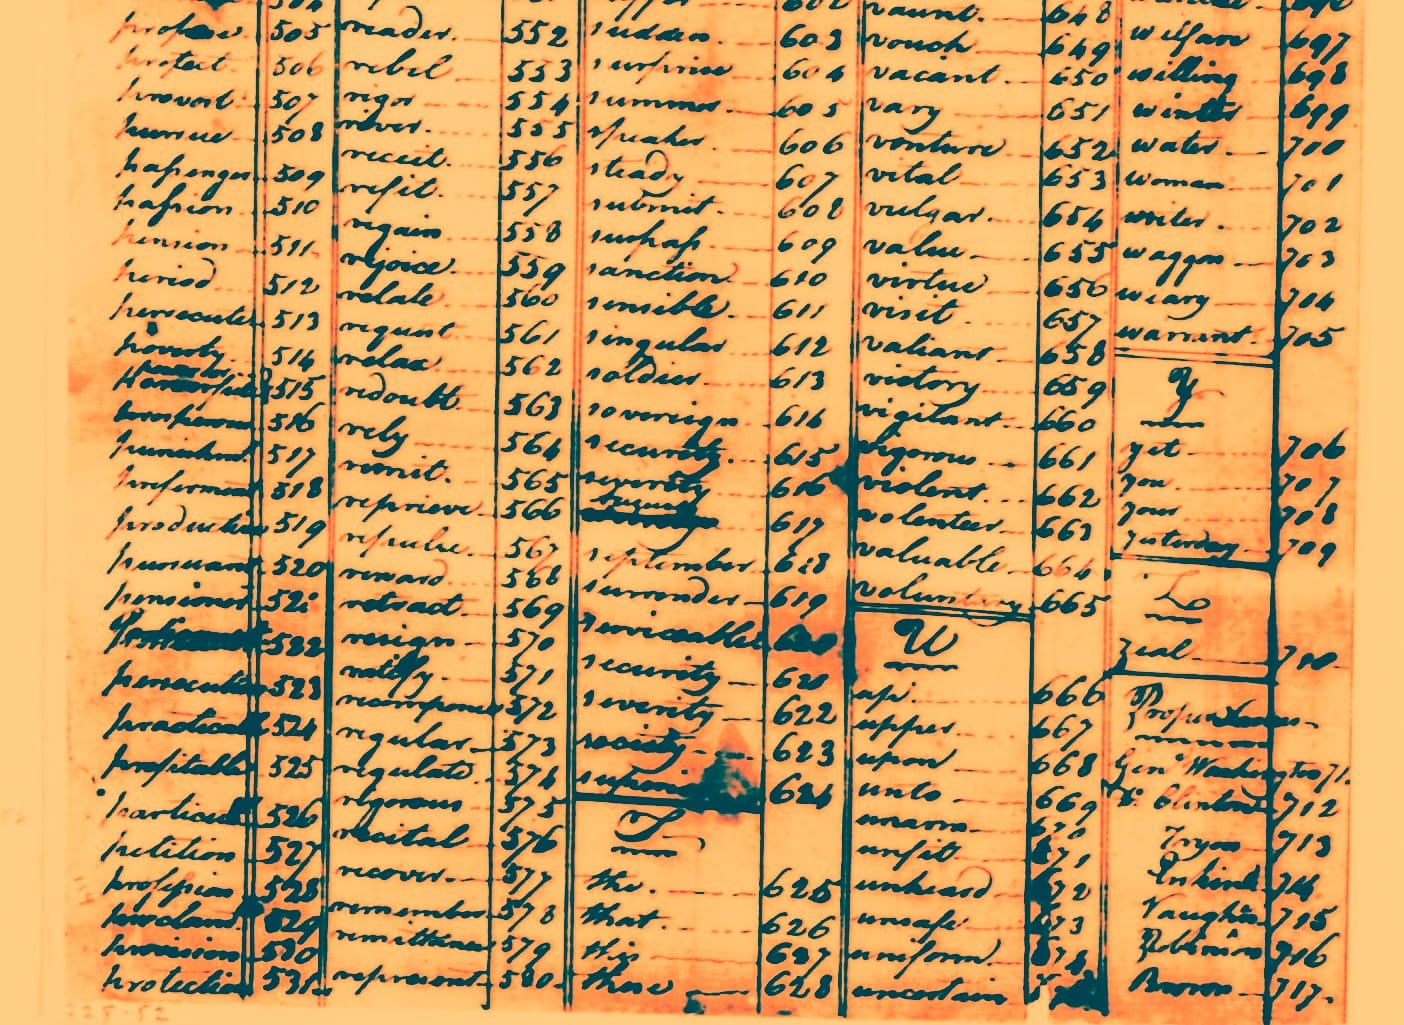 505
protect. 506
prevent 507
508
passenger 509
passion 510
pension 511
period 512
persecute 513
poverty 514
515
516
punishment 517
preferment 518
production 519
pursuant 520
pensioner 521
522
persecution 523
practicable 524
profitable 525
particular 526
petition 527
profession 528
proclaim 529
provision 530
protection 531
reader. 552
rebel 553
rigor 554
river. 555
receit. 556
refit. 557
regain 558
rejoice. 559
relate 560
request 561
relax 562
redoubt. 563
rely 564
remit. 565
reprieve. 566
repulse. 567
reward 568
retract. 569
resign 570
ratify. 571
recompence 572
regular 573
regulate. 574
rigorous 575
recital 576
recover. 577
remember 578
remittance 579
represent 580
sudden. 603
surprise 604
summer. 605
speaker. 606
steady 607
submit. 608
surpass. 609
sanction. 610
sensible. 611
singular 612
soldier. 613
sovereign 614
security. 615
severity 616
617
september 618
surrender 619
serviceable
security 621
severity 622
society 623
superior 624
T
the. 625
that. 626
this 627
these 628
vaunt. 648
vouch 649
vacant 650
vary 651
venture 652
vital 653
vulgar. 654
value. 655
virtue 656
visit. 657
valiant. 658
victory 659
vigilant 660
vigorous 661
violent. 662
volenteer. 663
valuable. 664
voluntary 665
U
up. 666
upper. 667
upon 668
unto 669
unarm 670
unfit. 671
unheard 672
unsafe 673
uniform. 674
uncertain
welfare 697
willing 698
winter 699
water. 700
woman 701
writer. 702
waggon 703
weary 704
warrant. 705
Y
yet. 706
you. 707
your 708
yesterday 709
Z
zeal 710
Proper Names
Genl Washington 711.
Do. Clinton 712
Tryon 713
Erskine 714
Vaughan 715
Robinson 716
Brown 717.